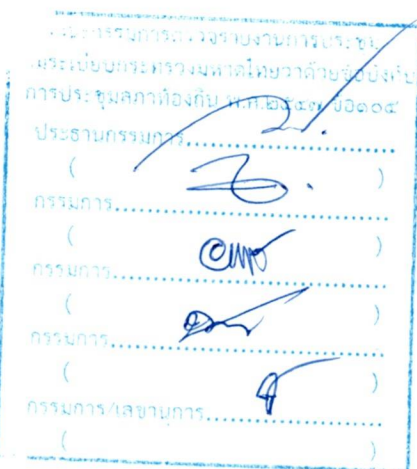 คณะกรรมการตรวจรายงานการประชุม
ตามระเบียบกระทรวงมหาดไทยว่าด้วยข้อบังคับ
การประชุมสภาท้องถิ่น พ.ศ.๒๕๔๗ ข้อ๑๐๕
ประธานกรรมการ....................
( )
กรรมการ....................
( )
กรรมการ....................
( )
กรรมการ....................
( )
กรรมการ/เลขานุการ....................
( )